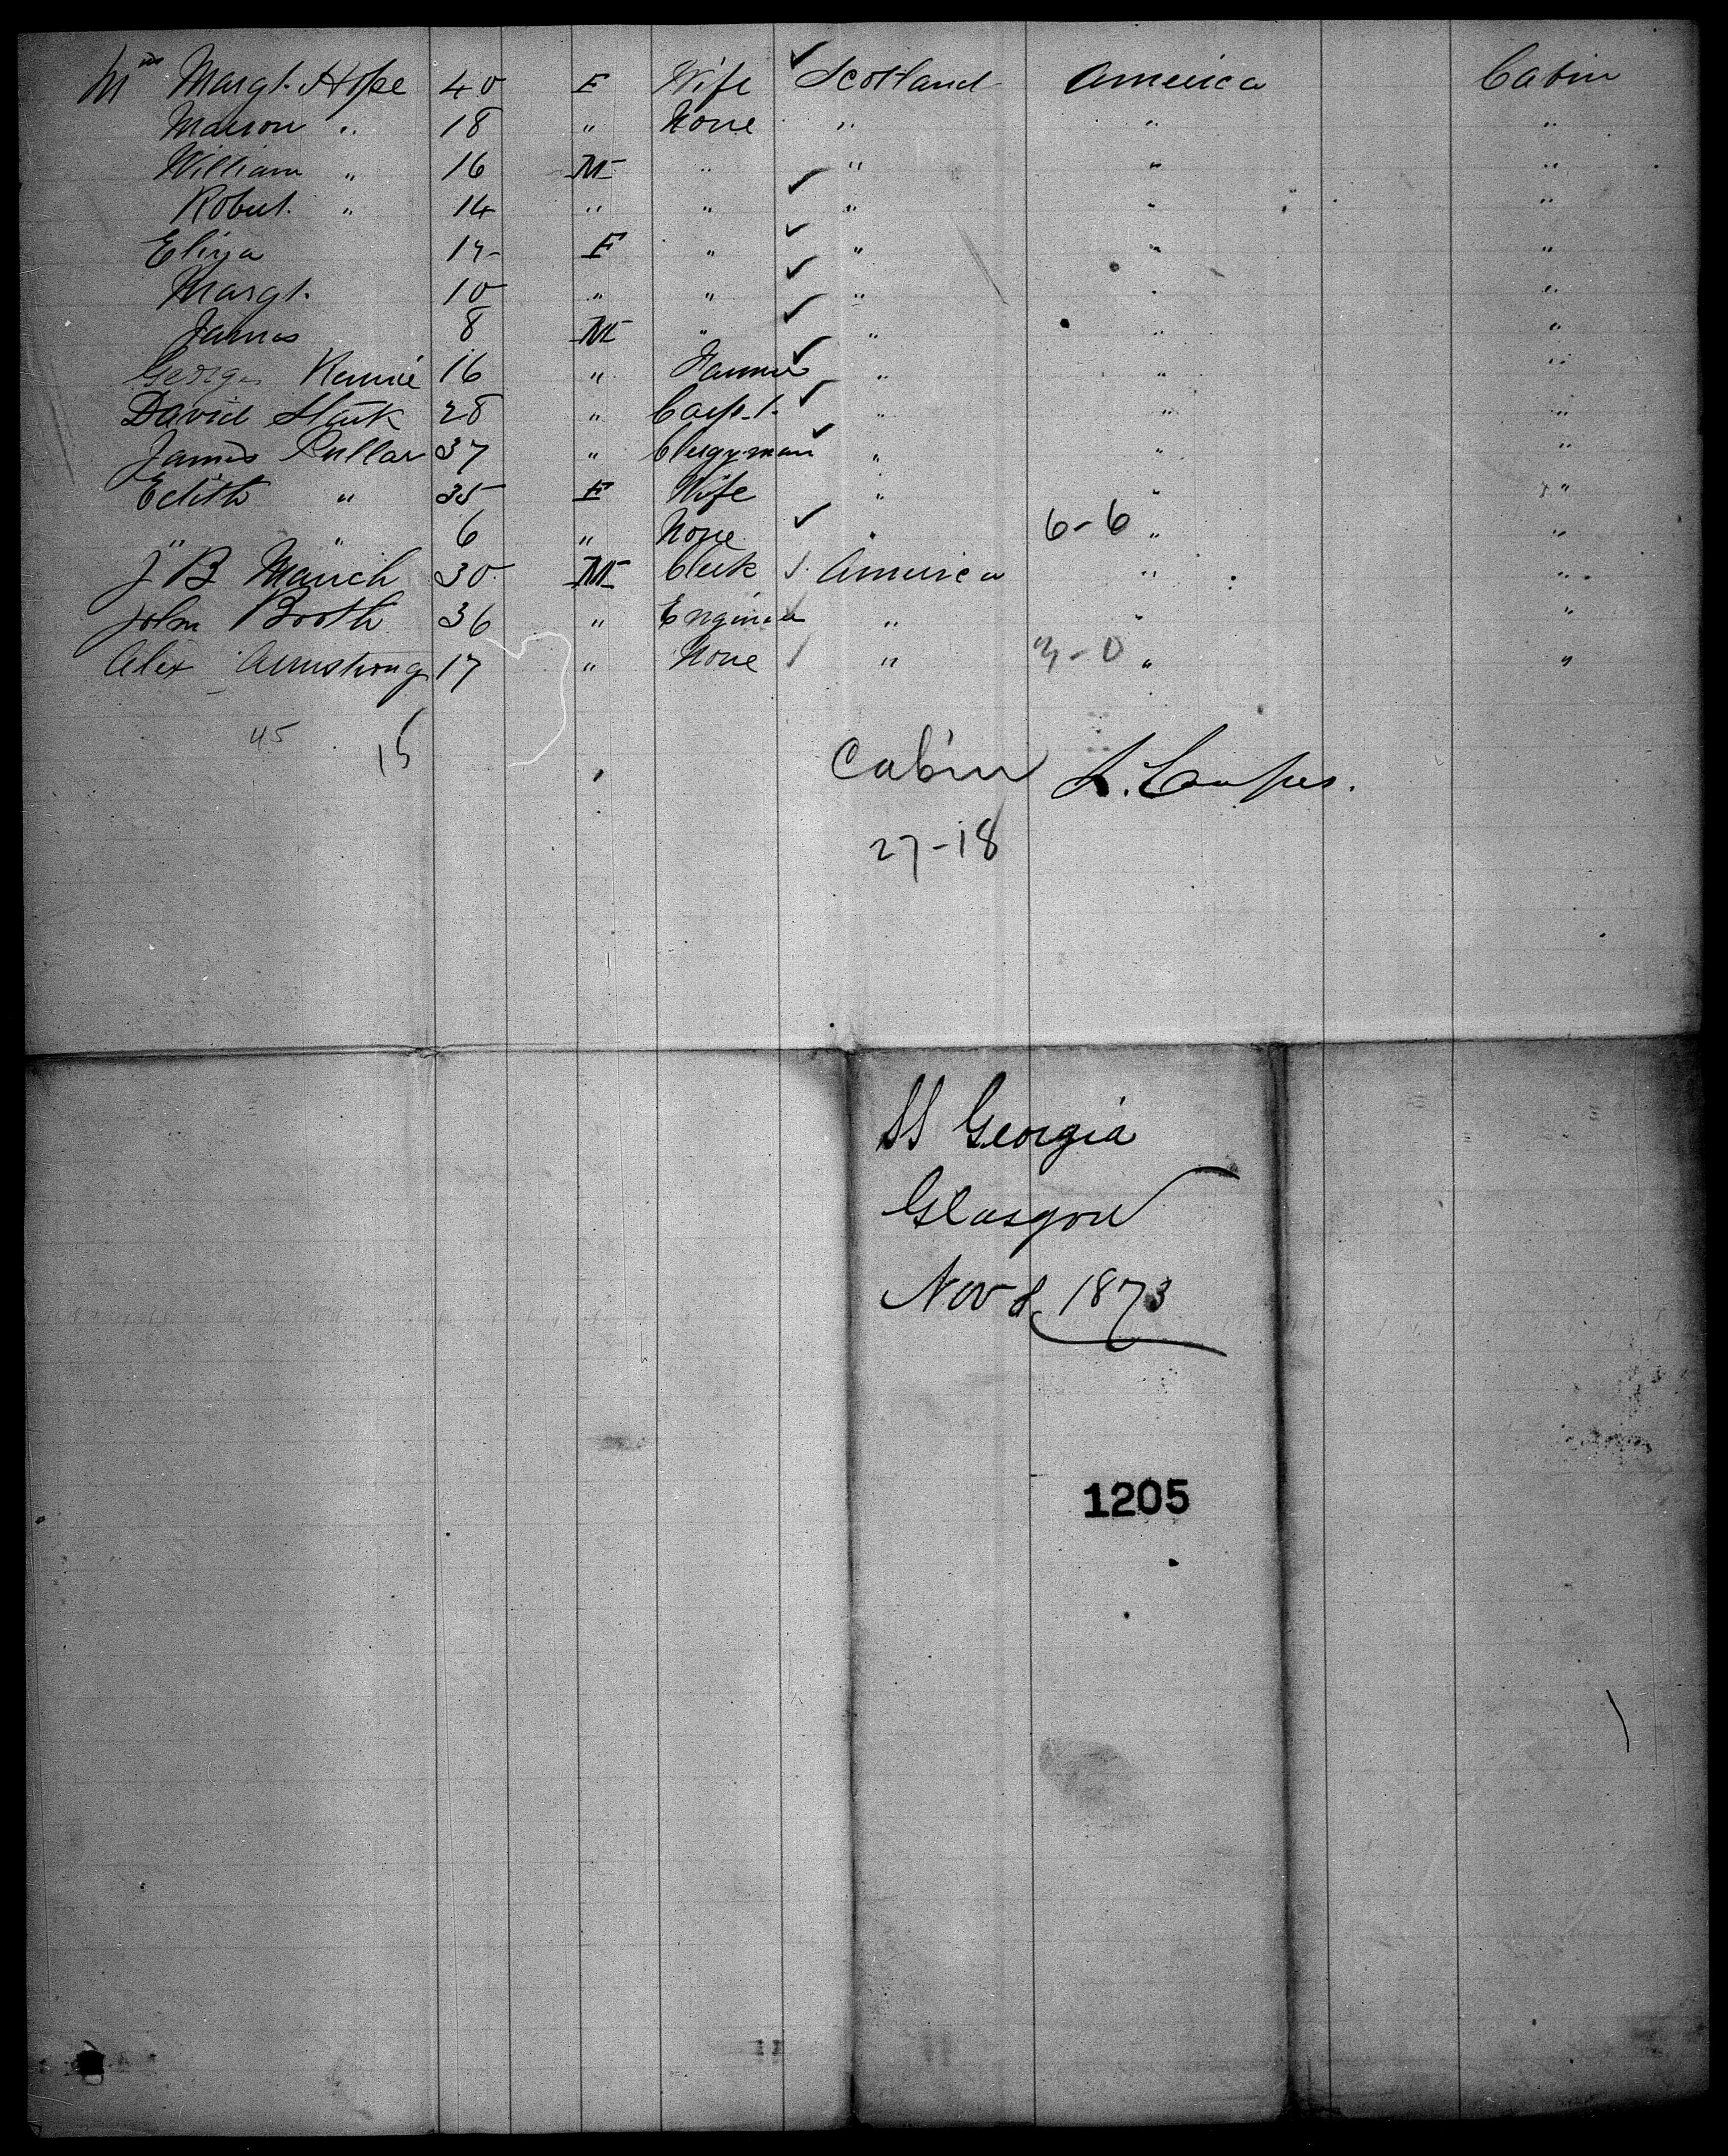 Mrs Margt. Hope 40 F Wife ✓ Scotland America Cabin
Marion " 18 " None " " "
William " 16 M " " " "
Robert " 14 " " ✓ " " "
Eliza 12 F " ✓ " " "
Margt. 10 " " ✓ " " "
James 8 M " ✓ " " "
George Rennie 16 " Farmer ✓ " " "
David Stark 28 " Carpt. ✓ " " "
James Pullar 37 " Clergyman ✓ " " "
Edith " 35 F Wife " " "
" " 6 " None ✓ " 6-6 " "
J B March 30 M Clerk / America " "
John Booth 36 " Engineer / " " "
Alex Armstrong 17 " None / " 3-0 " "
45 15
Cabin L. Coupes.
27-18
SS Georgia
Glasgow
Nov 8 1873
1205